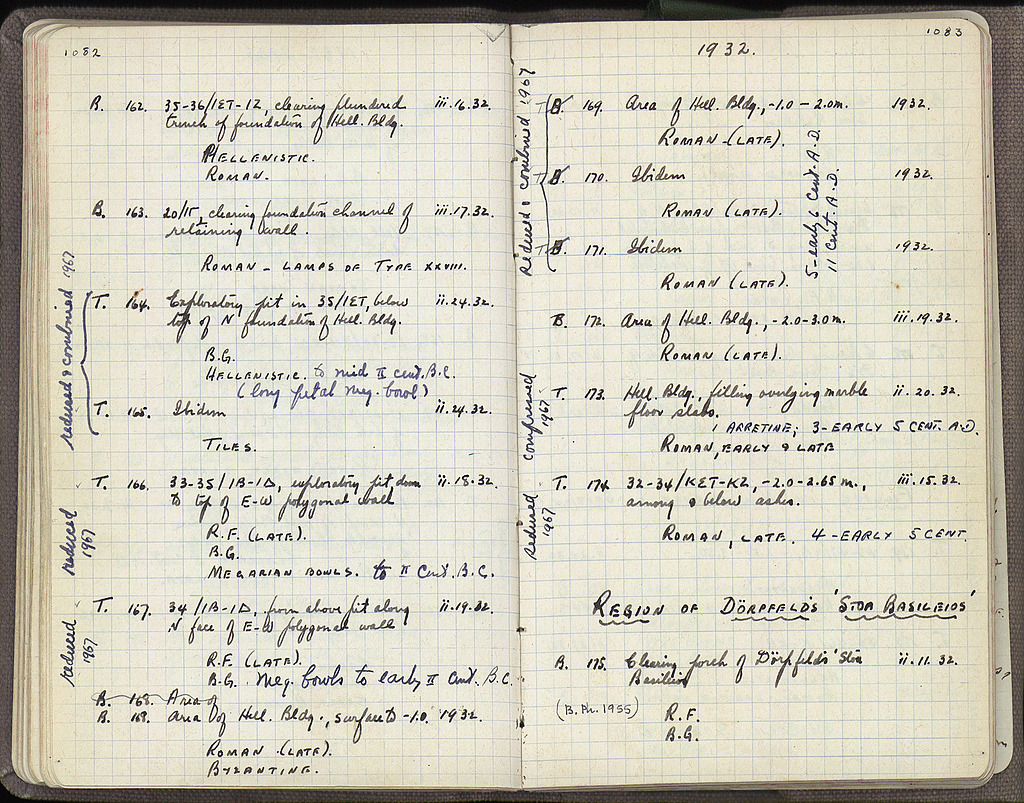 1082
B. 162. 35-36/ΙΣΤ-ΙΖ, clearing plundered iii.16.32.
trench of foundation of Hell. Bldg.
HELLENISTIC.
ROMAN.
B. 163. 20/ΙΓ, clearing foundation channel of iii.17.32.
retaining wall.
ROMAN - LAMPS OF TYPE XXVIII.
reduced & combined 1967
T. 164. Exploratory pit in 35/ΙΣΤ, below ii.24.32.
top of N foundation of Hell. Bldg.
B.G.
HELLENISTIC. to mid II cent. B.C.
(long petal Meg. bowl)
T. 165. Ibidem ii.24.32.
TILES.
reduced 1967
T. 166. 33-35/ΙΒ-ΙΔ, exploratory pit down ii.18.32.
to top of E-W polygonal wall
R.F. (LATE).
B.G.
MEGARIAN BOWLS. to II Cent. B.C.
reduced 1967
T. 167. 34/ΙΒ-ΙΔ, from above pit along ii.19.32.
N face of E-W polygonal wall
R.F. (LATE).
B.G. Meg. bowls to early II Cent. B.C.
B. 168. Area of
B. 168. Area of Hell. Bldg., surface to -1.0. 1932.
ROMAN (LATE).
BYZANTINE.
1083
1932.
Reduced & combined 1967
T B. 169. Area of Hell. Bldg., -1.0 - 2.0m. 1932.
ROMAN (LATE).
T B. 170. Ibidem 1932.
ROMAN (LATE).
T B. 171. Ibidem 1932.
ROMAN (LATE).
5-early 6 Cent. A.D.
11 Cent. A.D.
B. 172. Area of Hell. Bldg., -2.0-3.0m. iii.19.32.
ROMAN (LATE).
compressed 1967
T. 173. Hell. Bldg., filling overlying marble ii.20.32.
floor slabs.
1 ARRETINE; 3-EARLY 5 CENT. A.D.
ROMAN, EARLY & LATE
Reduced 1967
T. 174. 32-34/ΚΣΤ-ΚΖ, -2.0-2.65 m., iii.15.32.
among & below ashes.
ROMAN, LATE. 4-EARLY 5 CENT.
REGION OF DÖRPFELD'S 'STOA BASILEIOS'
B. 175. Clearing porch of Dörpfeld's 'Stoa ii.11.32.
Basileios
(B. Ph. 1955)
R.F.
B.G.